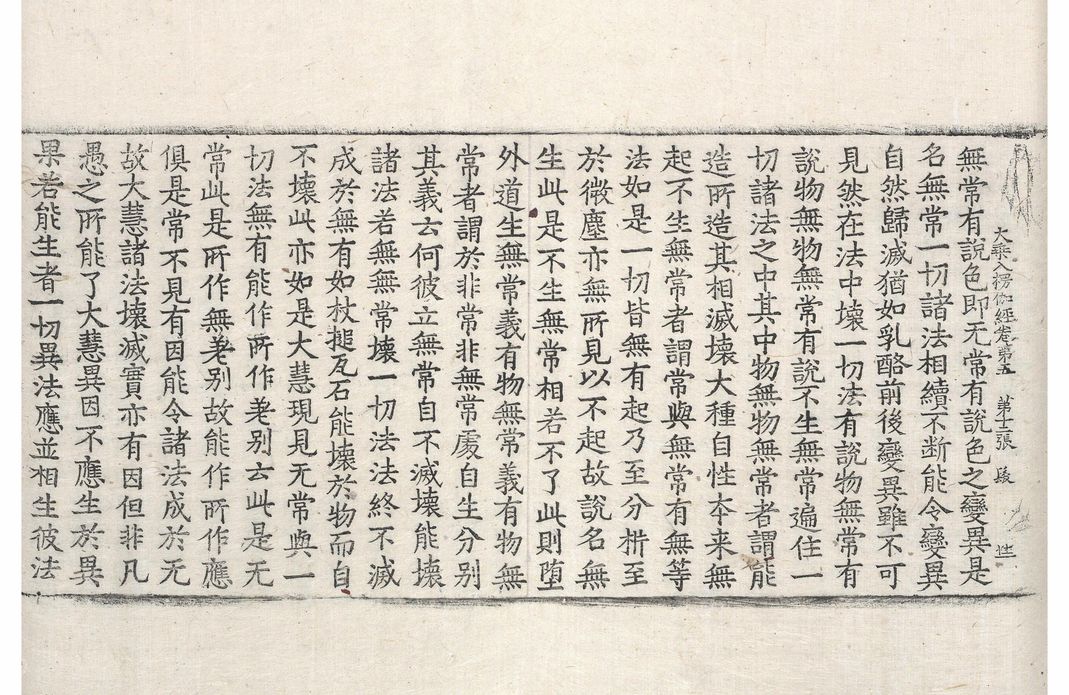 大乘入楞伽經卷第五 第十二張 改
無常有說色即无常有說色之變異是
名無常一切諸法相續不断能令變異
自然歸滅猶如乳酪前後變異雖不可
見然在法中壞一切法有說物無常有
說物無物無常有說不生無常遍住一
切諸法之中其中物無物無常者謂能
造所造其相滅壞大種自性夲来無
起不生無常者謂常與無常有無等
法如是一切皆無有起乃至分析至
於微塵亦無所見以不起故說名無
生此是不生無常相若不了此則堕
外道生無常義有物無常義有物無
常者謂於非常非無常處自生分別
其義云何彼立無常自不滅壞能壞
諸法若無無常壞一切法法終不滅
成於無有如杖搥瓦石能壞於物而自
不壞此亦如是大慧現見无常與一
切法無有能作所作差別云此是无
常此是所作無差別故能作所作應
俱是常不見有因能令諸法成於无
故大慧諸法壞滅實亦有因但非凡
愚之所能了大慧異因不應生於異
果若能生者一切異法應並相生彼法